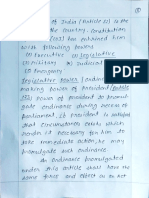 of India (Article 52) is the
the country. Constitution
(53) has entrusted him
with following powers
(1) Executive (2) Legislative
(3) Military (4) Judicial
(5) Emergency
Legislative power (ordinance
making power of president) Article
(123) power of president to promul
gate ordinance during recess of
parliament, if president is satisfied
that circumstances exists which
render it necessary for him
to take immediate action, he
may promulgate such ordinance.
An ordinance promulgated
under this article shall have the
same force and effect as an act